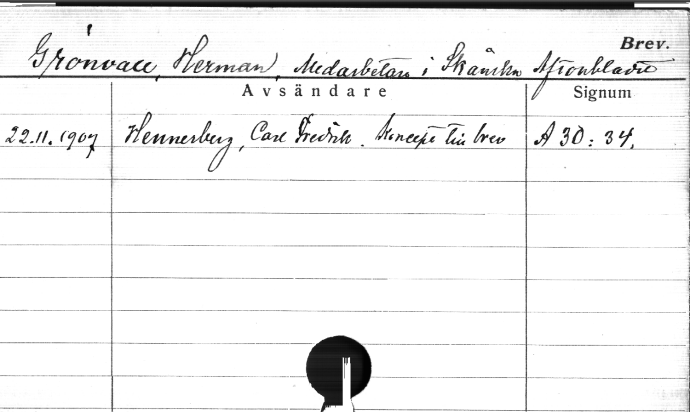 Brev.
Grönvall, Herman, Medarbetare i Skånska Aftonbladet
Avsändare Signum
22.11.1907 Hennerberg, Carl Fredrik. Koncept till brev A 30: 34.